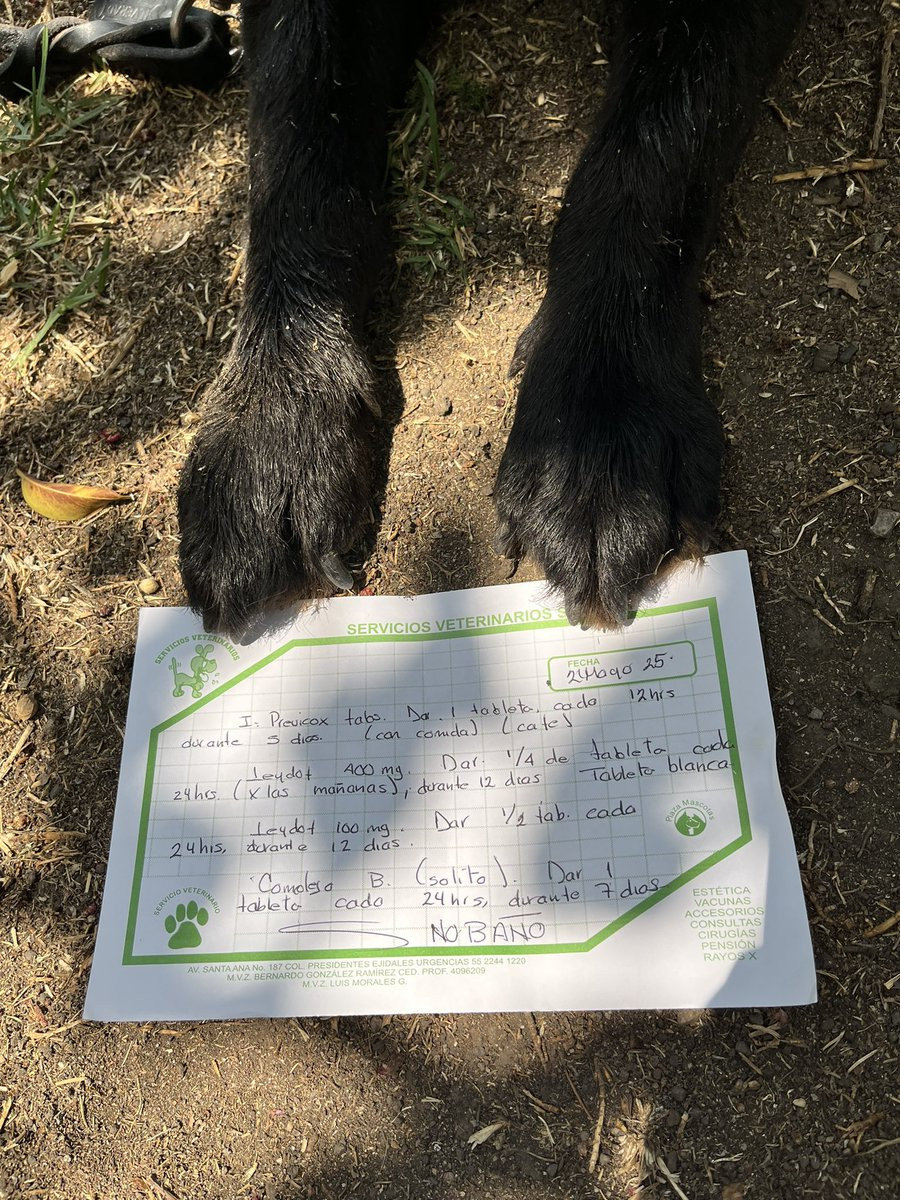 SERVICIOS VETERINARIOS
SERVICIOS VETERINARIOS S
FECHA
24 Mago 25.
I.- Previcox tabs. Dar 1 tableta, cada 12hrs
durante 5 dias. (con comida) (cafe)
Leydof 400 mg. Dar 1/4 de tableta cada
24hrs. (x las mañanas), durante 12 dias Tableta blanca
Leydof 100 mg. Dar 1/2 tab. cada
24hrs, durante 12 dias.
Complejo B. (solito). Dar 1
tableta cada 24hrs, durante 7 dias
NO BAÑO
Plaza Mascotas
SERVICIO VETERINARIO
ESTÉTICA
VACUNAS
ACCESORIOS
CONSULTAS
CIRUGÍAS
PENSIÓN
RAYOS X
AV. SANTA ANA No. 187 COL. PRESIDENTES EJIDALES URGENCIAS 55 2244 1220
M.V.Z. BERNARDO GONZÁLEZ RAMÍREZ CED. PROF. 4096209
M.V.Z. LUIS MORALES G.